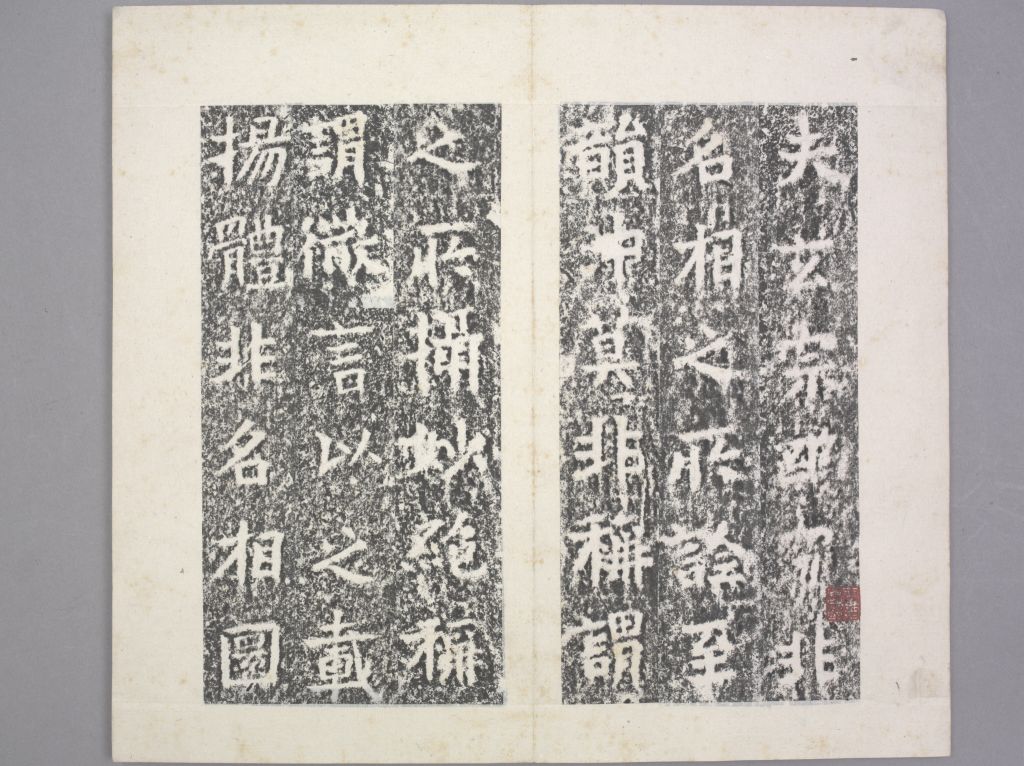 夫玄宗非
名相之所詮至
韻沖莫非稱謂
之所攝妙絕稱
謂微言以之載
揚體非名相圖